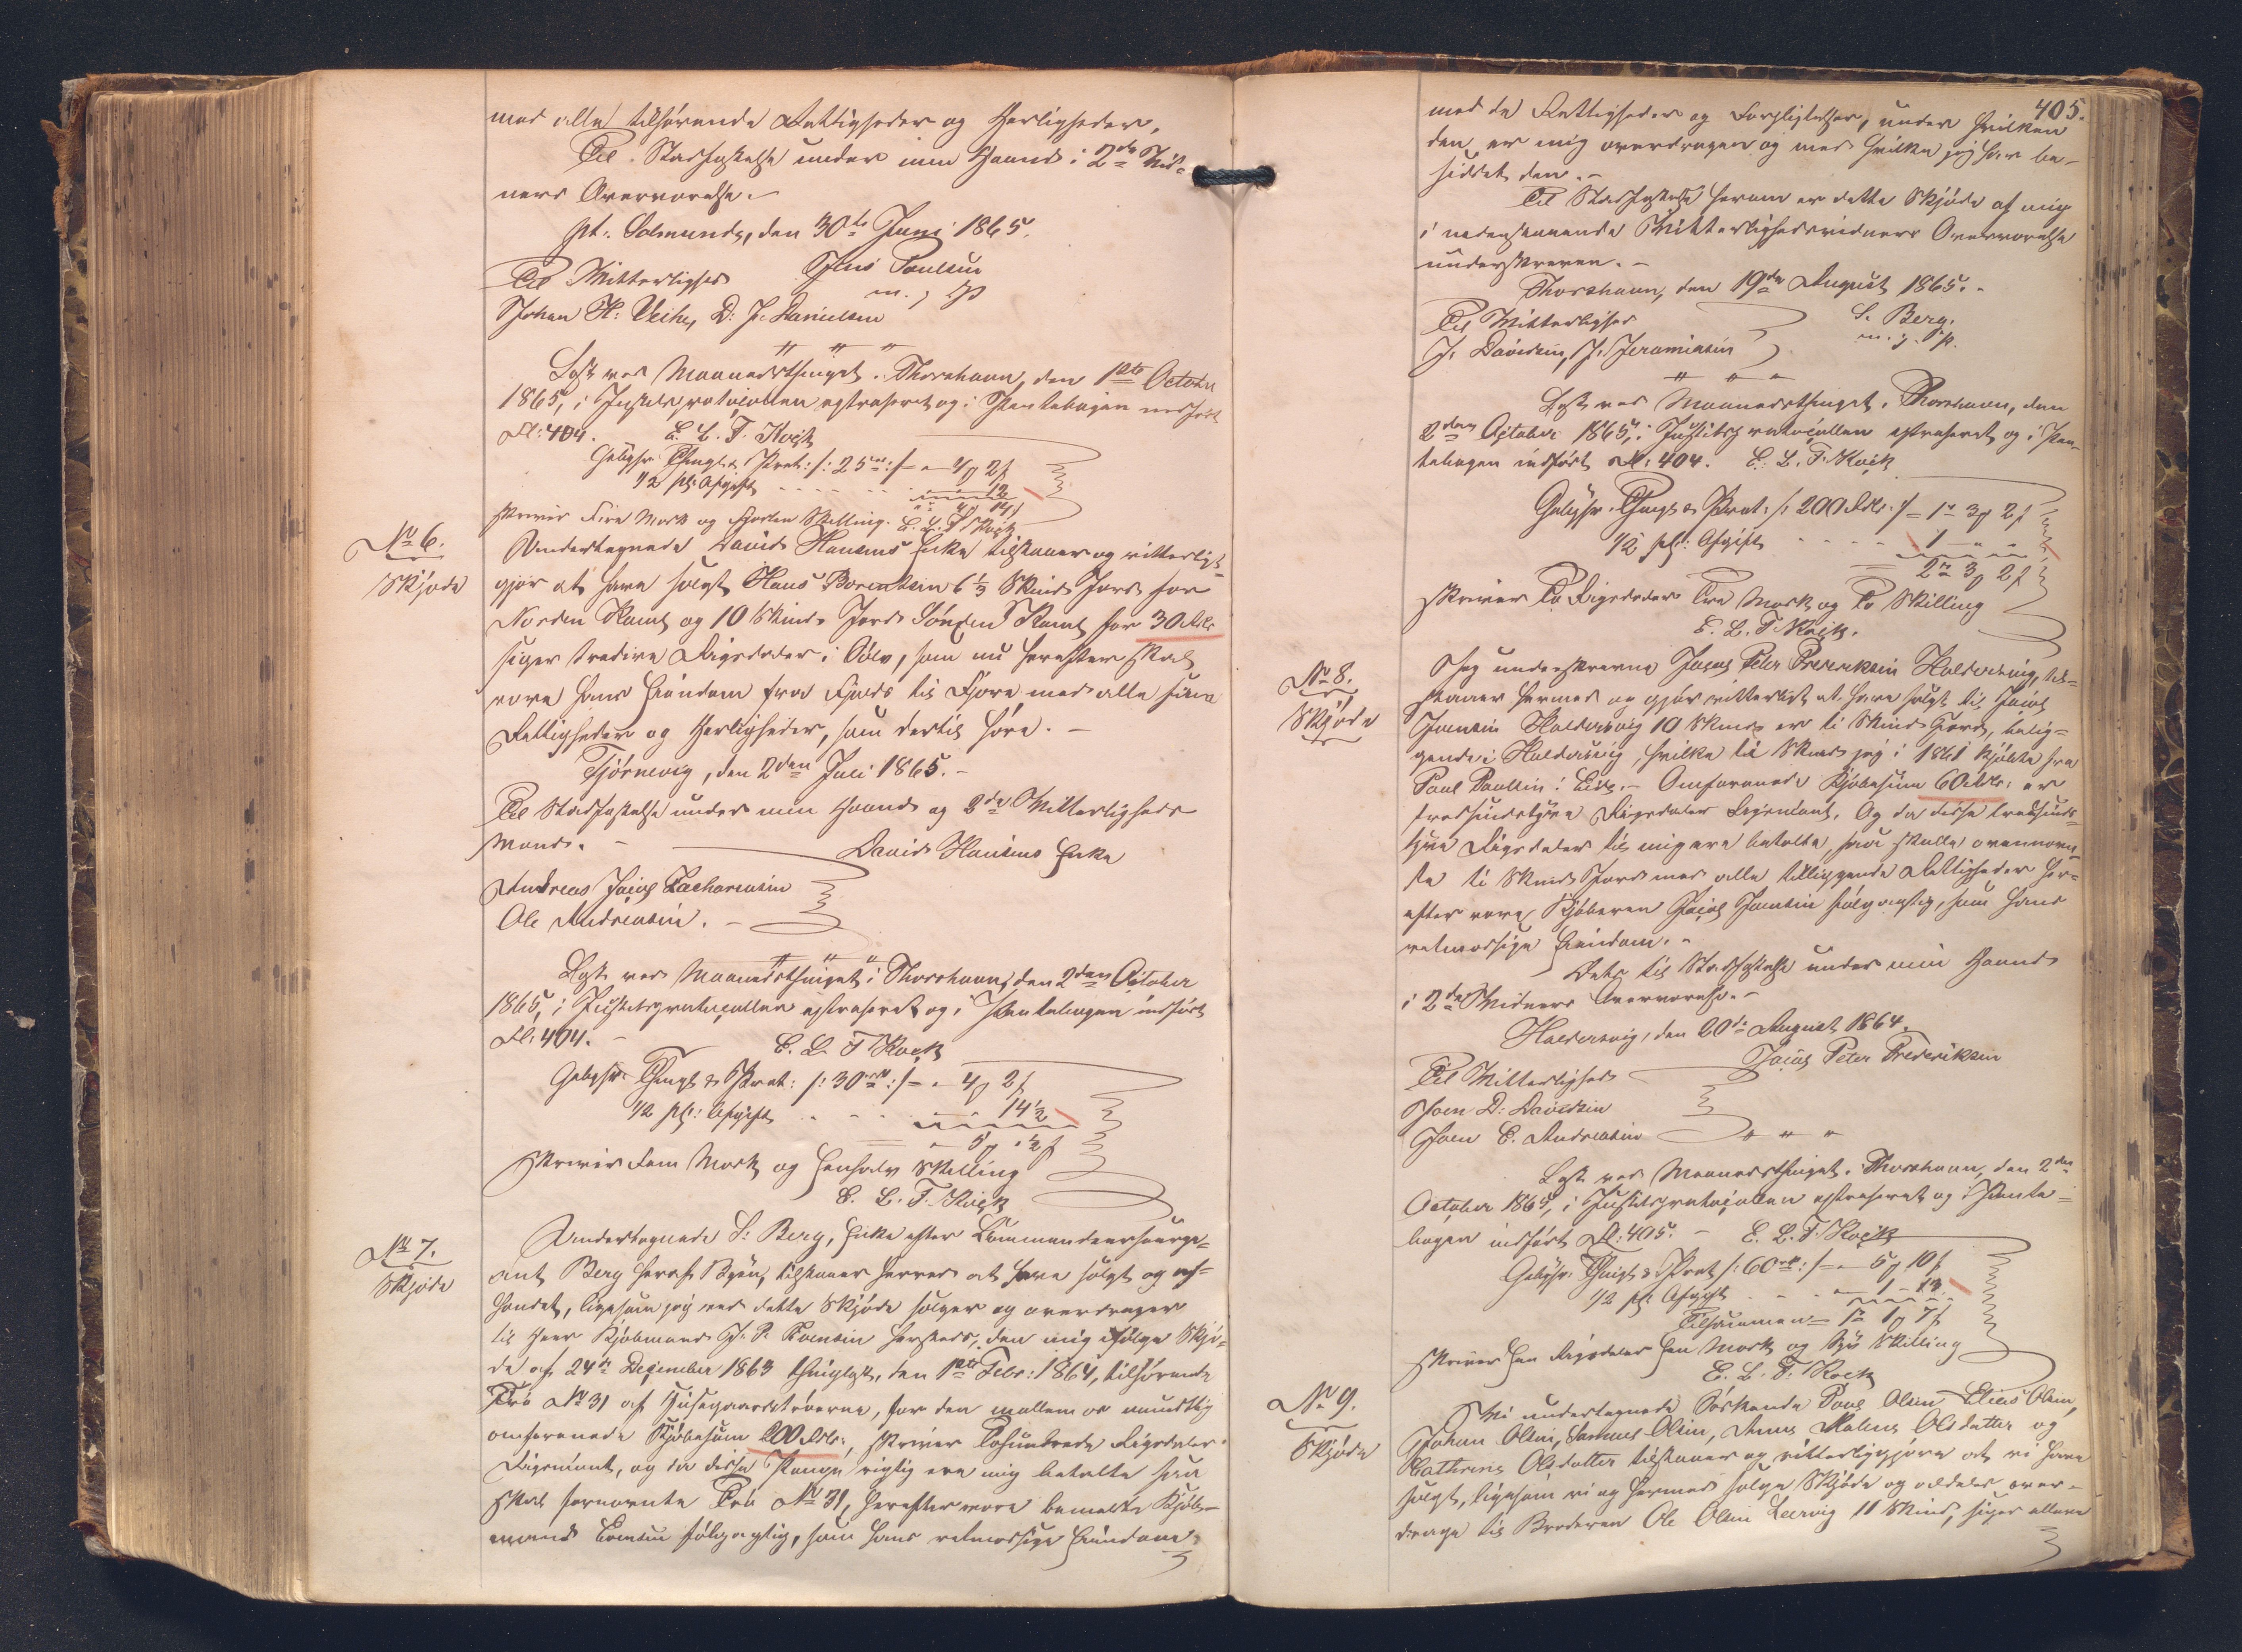 med alle tilhørende Rettigheder og Herligheder.
Til Stadfæstelse under min Haand i 2de Vid=
ners Overværelse.-
pt. Solmunde, den 30te Juni 1865.
Til Vitterlighed Jens Poulsen
m. p
Johan H: Veihe, D: J. Danielsen
" " "
Læst ved Maanedsthinget i Thorshavn, den 1ste October
1865, i Justitsprotocollen extraheret og i Pantebogen indført
Fl: 404. E. L. T. Kock
Gebyhr Thingl. & Prot: /: 25 rd :/ = " 4 ƶ 2 s
1/2 pCt: Afgift - - - - 12
" 4 14 s
skriver Fire Mark og Fjorten Skilling. E. L. T. Kock
No 6.
Skjøde
Undertegnede David Hansens Enke tilstaaer og vitterligt=
gjør at have solgt Hans Berentsen 6 1/3 Skind Jord for
Norden Kamb og 10 Skind Jord Sønden Kamb for 30 Rdlr
siger tredive Rigsdaler i Sølv, som nu herefter skal
være hans Eiendom fra Fjeld til Fjøre med alle sine
Rettigheder og Herligheder, som dertil høre. -
Tjørnevig, den 2den Juli 1865. -
Til Stadfæstelse under min Haand og 2de Vitterligheds
Mænd. - David Hansens Enke
Andreas Jacob Zachariasen
Ole Andreasen. -
" " "
Læst ved Maanedsthinget i Thorshavn, den 2den October
1865, i Justitsprotocollen extraheret og i Pantebogen indført
Fl: 404. - E. L. T Kock
Gebyhr Thingl & Prot: /: 30 rd :/ = " 4 ƶ 2 s
1/2 pCt: Afgift - - - 14 1/2
= " 5 ƶ " 1/2 s
skriver Fem Mark og Enhalv Skilling
E. L. T. Kock
No 7.
Skjøde
Undertegnede S: Berg, Enke efter Commandeersserge=
ant Berg heraf Byen, tilstaaer herved at have solgt og af=
hændet, ligesom jeg ved dette Skjøde sælger og overdrager
til Herr Kjøbmand J. P. Evensen hersteds, den mig ifølge Skjø=
de af 24de December 1863 thinglyst, den 1ste Febr: 1864, tilhørende
Trø No 31 af Huusegaardstrøerne, for den mellem os mundtlig
omforenede Kjøbesum 200 Rdlr:, skriver Tohundrede Rigsdaler
Rigsmønt, og da disse Penge rigtig ere mig betalte saa
skal fornævnte Trø No 31, herefter være bemeldte Kjøb=
mand Evensen følgagtig, som hans retmæssige Eiendom,
405.
med de Rettigheder og Forpligtelser, under hvilken
den er mig overdragen og med hvilke jeg har be=
siddet den. -
Til Stadfæstelse herom er dette Skjøde af mig
i nedennævnte Vitterlighedsvidners Overværelse
underskreven. -
Thorshavn, den 19de August 1865. -
Til Vitterlighed S. Berg.
J. Davidsen, J. Jeremiasen m. p. p.
" " "
Læst ved Maanedsthinget i Thorshavn, den
2den October 1865, i Justitsprotocollen extraheret og i Pan=
tebogen indført Fl: 404. E. L. T. Kock
Gebyhr Thingl & Prot: /: 200 Rdlr: :/ = 1 rd 3 ƶ 2 s
1/2 pCt: Afgift - - - - 1 - " -
= 2 rd 3 ƶ 2 s
skriver To Rigsdaler Tre Mark og To Skilling
E. L. T. Kock.
No 8.
Skjøde
Jeg underskrevne Jacob Peter Frederiksen Haldersvig, til=
staaer hermed og gjør vitterligt at have solgt til Jacob
Joensen Haldersvig 10 Skind er ti Skind Jord, belig=
gende i Haldersvig, hvilke ti Skind jeg i 1861 kjøbte fra
Poul Poulsen i Eide. - Omforenede Kjøbesum 60 Rdlr: er
tredsindstyve Rigsdaler Rigsmønt. Og da disse tredsinds=
tyve Rigsdaler til mig ere betalte, saa skulle ovennævn=
te ti Skind Jord med alle tilliggende Rettigheder her=
efter være Kjøberen Jacob Joensen følgagtig, som hans
retmæssige Eiendom. -
Dette til Stadfæstelse under min Haand
i 2de Vidners Overværelse. -
Haldersvig, den 20de August 1864.
Til Vitterlighed Jacob Peter Frederiksen
Joen D: Davidsen
Joen E. Andreasen " " "
Læst ved Maanedsthinget i Thorshavn, den 2den
October 1865, i Justitsprotocollen extraheret og i Pante=
bogen indført Fl: 405. - E. L. T. Kock
Gebyhr Thingl & Prot /: 60 rd :/ = " 5 ƶ 10 s
1/2 pCt: Afgift - - - " 1 - 13
Tilsammen = 1 rd 1 ƶ 7 s
skriver Een Rigsdaler Een Mark og Syv Skilling
E. L. T. Kock
No 9.
Skjøde
Vi undertegnede Søskende Poul Olsen, Elias Olsen,
Johan Olsen, Samuel Olsen, Anna Malene Olsdatter og
Cathrine Olsdatter tilstaaer og vitterliggjøre at vi have
solgt, ligesom vi og hermed sælge Skjøde og aldeles over=
drage til Broderen Ole Olsen Leervig 11 Skind, siger elleve